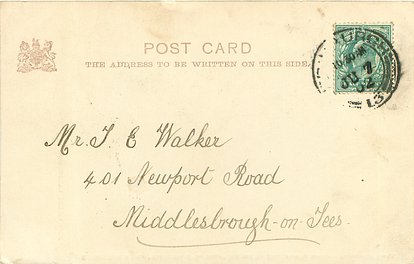 POST CARD
THE ADDRESS TO BE WRITTEN ON THIS SIDE.
Mr. J E Walker
401 Newport Road
Middlesbrough-on-Tees.